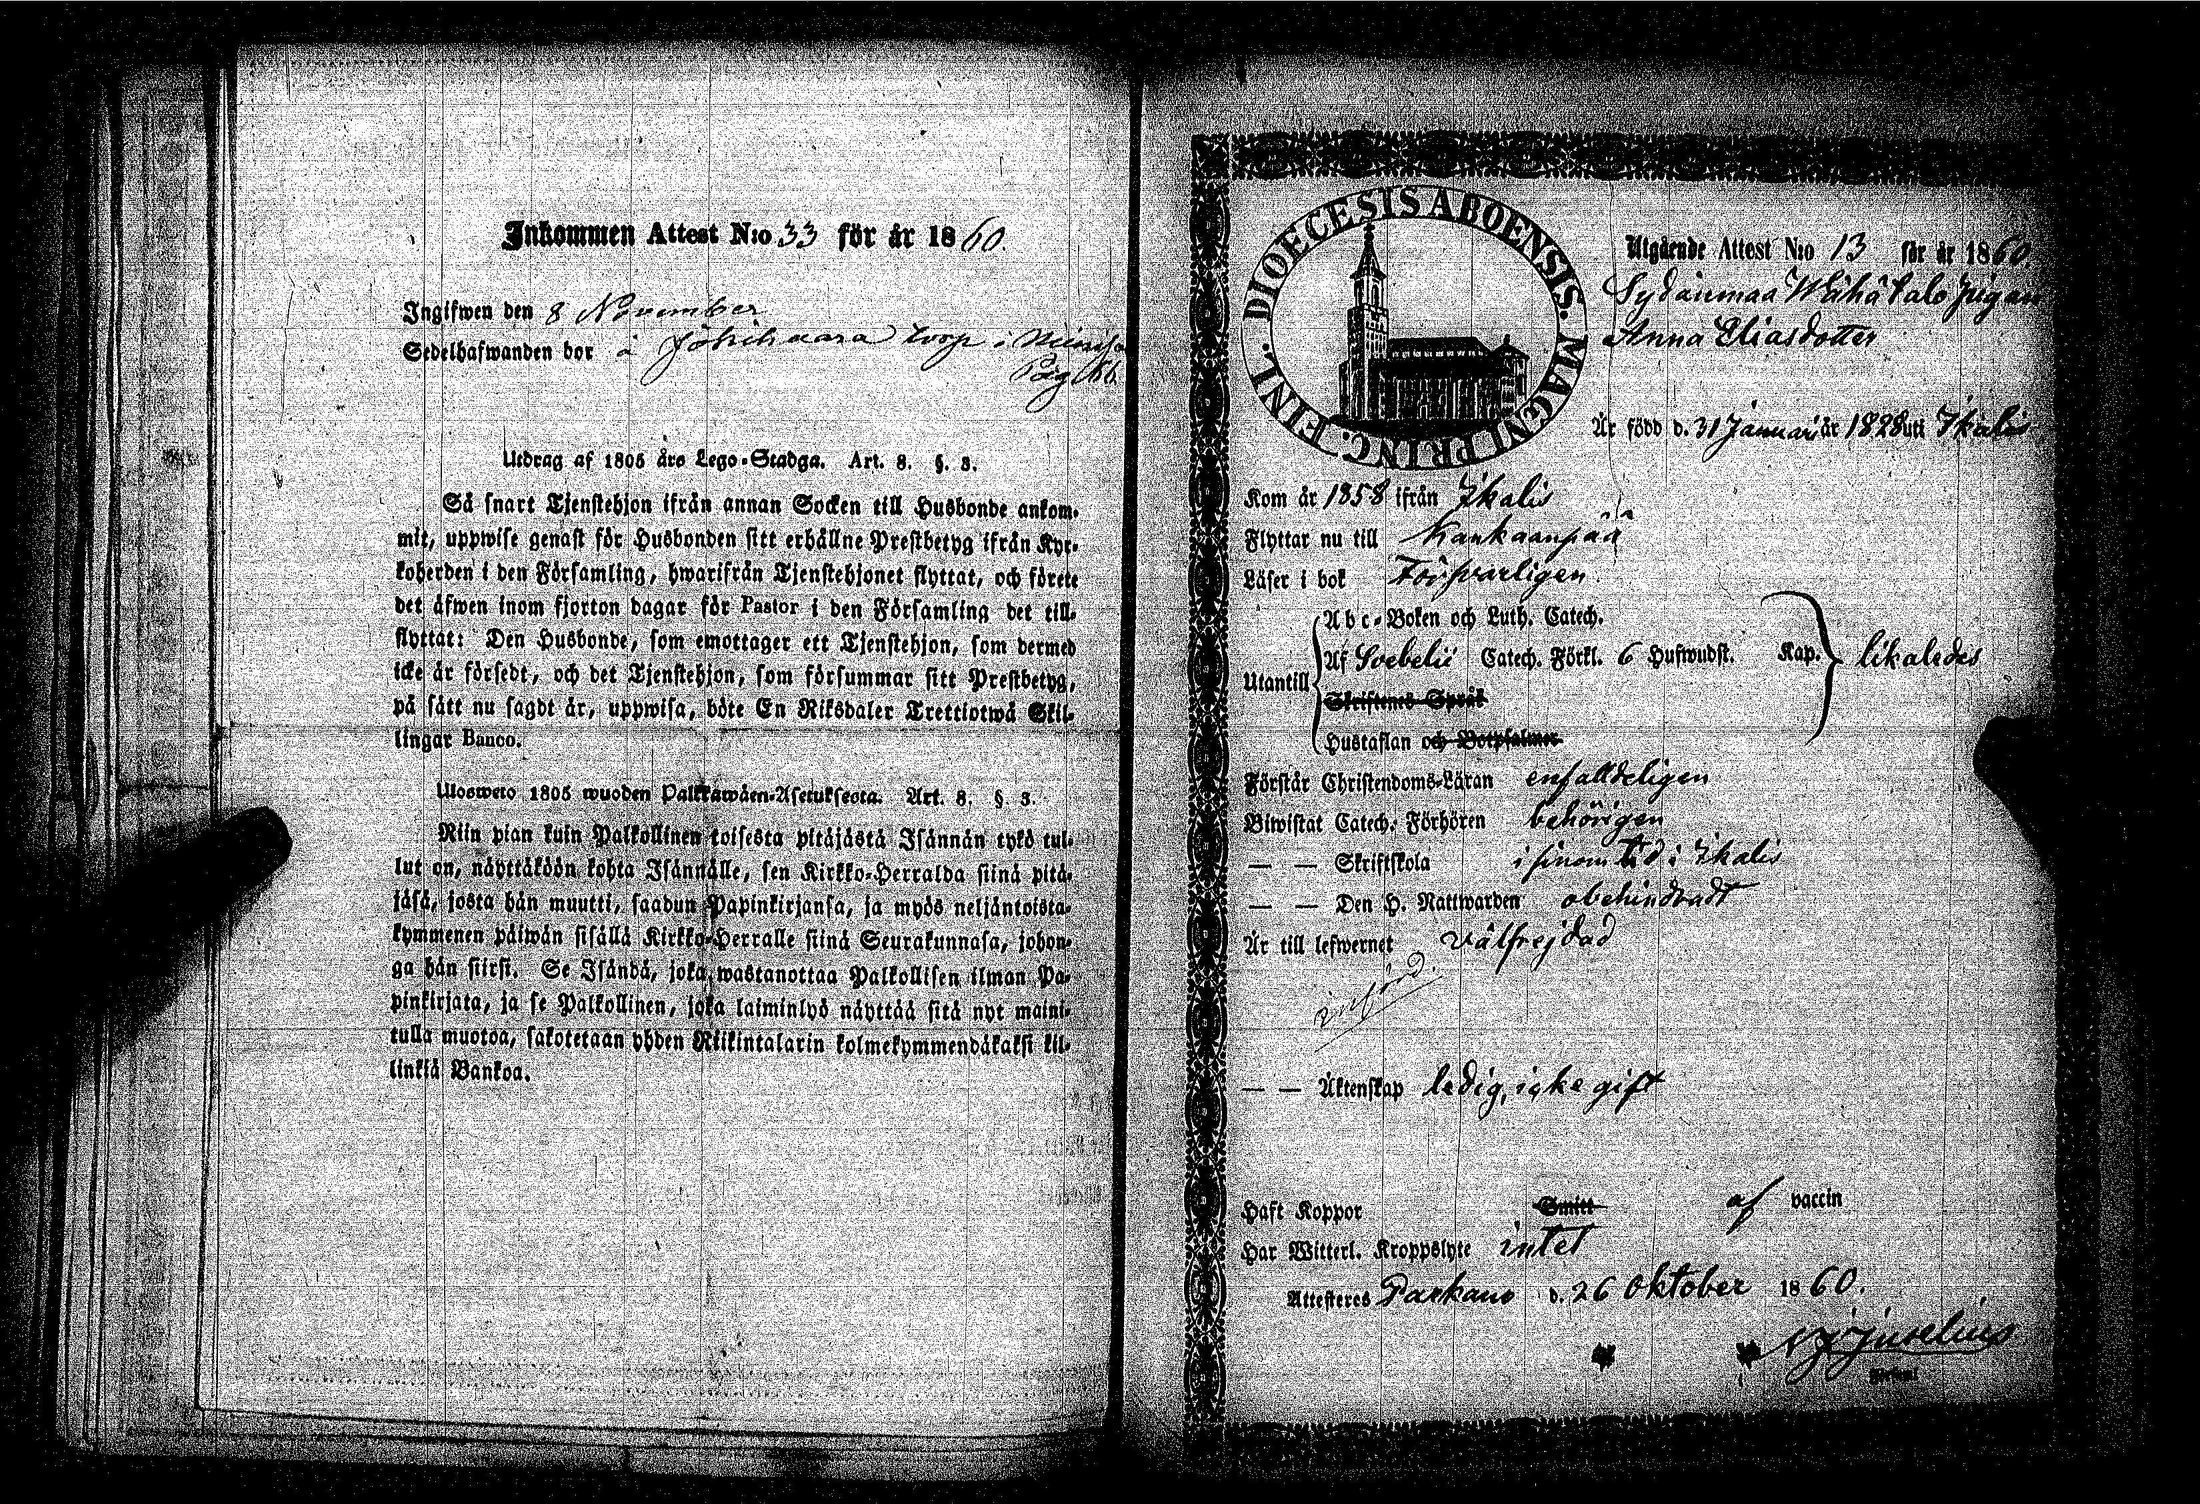 Inkommen Attest N:o 33 för år 1860.
Ingifwen den 8 November
Sedelhafwanden bor å torp i
Pag
Utdrag af 1805 års Lego-Stadga. Art. 8. §. 3.
Så snart Tjenstehjon ifrån annan Socken till Husbonde ankom-
mit, uppwise genast för Husbonden sitt erhållne Prestbetyg ifrån Kyr-
koherden i den Församling, hwarifrån Tjenstehjonet flyttat, och förete
det äfwen inom fjorton dagar för Pastor i den Församling det till-
flyttat: Den Husbonde, som emottager ett Tjenstehjon, som dermed
icke är försedt, och det Tjenstehjon, som försummar sitt Prestbetyg,
på sätt nu sagdt är, uppwisa, böte En Riksdaler Trettiotwå Skil-
lingar Banco.
Ulosweto 1805 wuoden Palkkawäen-Asetuksesta. Art. 8. § 3.
Niin pian kuin Palkollinen toisesta pitäjästä Isännän tykö tul-
lut on, näyttäköön kohta Isännälle, sen Kirkko-Herralda siinä pitä-
jäsä, josta hän muutti, saadun Papinkirjansa, ja myös neljäntoista-
kymmenen päiwän sisällä Kirkko-Herralle siinä Seurakunnasa, johon-
ga hän siirsi. Se Isändä, joka wastanottaa Palkollisen ilman Pa-
pinkirjata, ja se Palkollinen, joka laiminlyö näyttää sitä nyt maini-
tulla muotoa, sakotetaan yhden Riikintalarin kolmekymmendäkaksi kil-
linkiä Bankoa.
DIOECESIS ABOENSIS. MAGNI PRINC. FINL.
Utgående Attest N:o 13 för år 1860
Sydänmaa Wähäsalo Pigan
Anna Eliasdotter
Är född d. 31 Januari år 1828 uti Ikalis
Kom år 1858 ifrån Ikalis
Flyttar nu till Kankaanpää
Läser i bok Försvarligen
Abc-Boken och Luth. Catech.
Utantill Af Svebelii Catech. Förkl. 6 Hufwudst. Kap. likaledes
Skriftenes Språk
Hustaflan och Botpsalmer
Förstår Christendoms-Läran enfalldeligen
Biwistat Catech. Förhören behörigen
— — Skriftskola i sinom tid i Ikalis
— — Den H. Nattwarden obehindradt
Är till lefwernet välfrejdad
införd.
— — Äktenskap ledig, icke gift
Haft Koppor Smitt af vaccin
Har Witterl. Kroppslyte intet
Attesteres Parkano d. 26 Oktober 1860.
Juselius